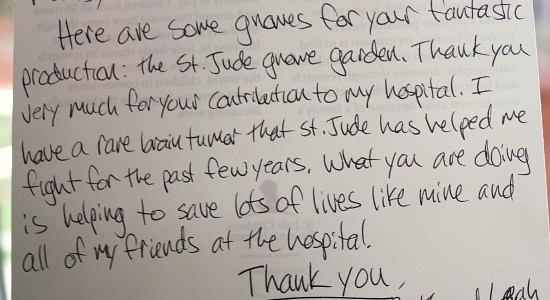 Here are some gnomes for your fantastic
production: the St. Jude gnome garden. Thank you
very much for your contribution to my hospital. I
have a rare brain tumor that St. Jude has helped me
fight for the past few years. What you are doing
is helping to save lots of lives like mine and
all of my friends at the hospital.
Thank you,